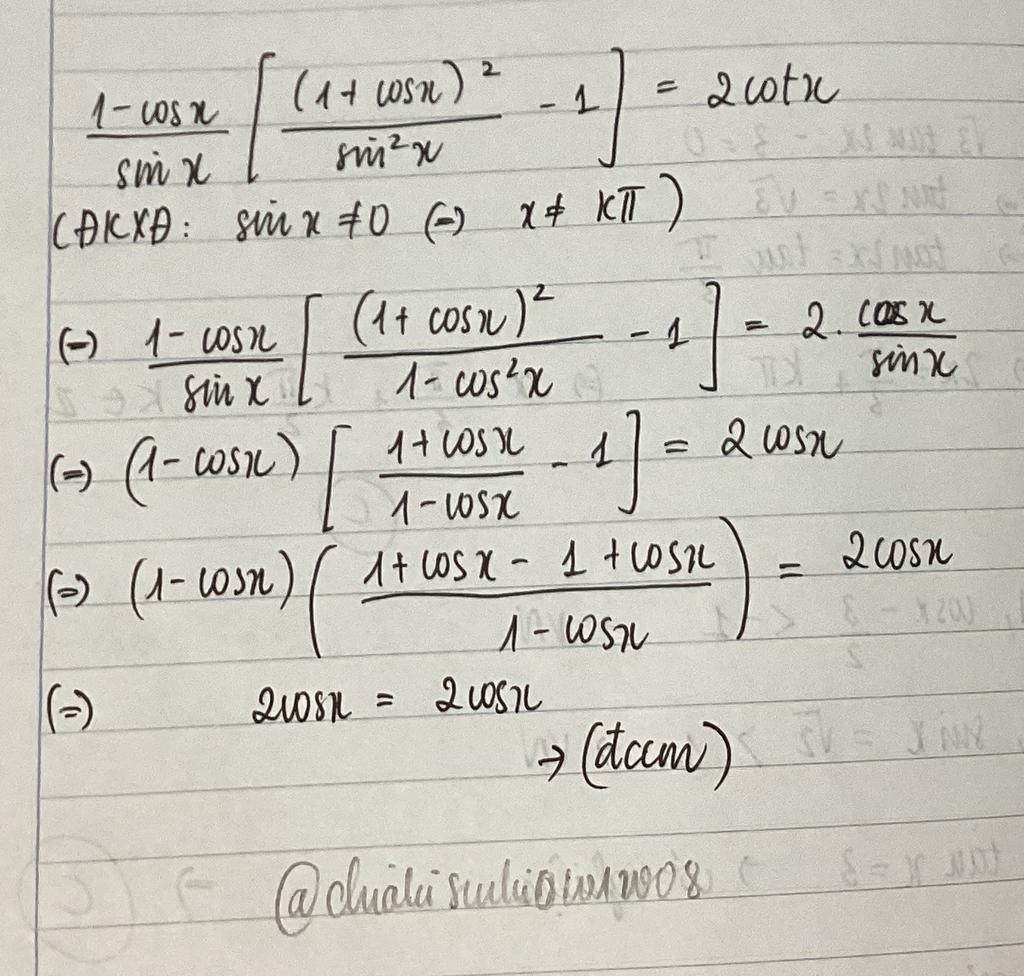 (1-cosx)/(sinx) [ (1+cosx)²/(sin²x) - 1 ] = 2cotx
(ĐKXĐ: sinx ≠ 0 (=) x ≠ kπ)
(=) (1-cosx)/(sinx) [ (1+cosx)²/(1-cos²x) - 1 ] = 2. (cosx)/(sinx)
(=) (1-cosx) [ (1+cosx)/(1-cosx) - 1 ] = 2cosx
(=) (1-cosx) ( (1+cosx - 1 + cosx)/(1-cosx) ) = 2cosx
(=) 2cosx = 2cosx
→ (đccm)